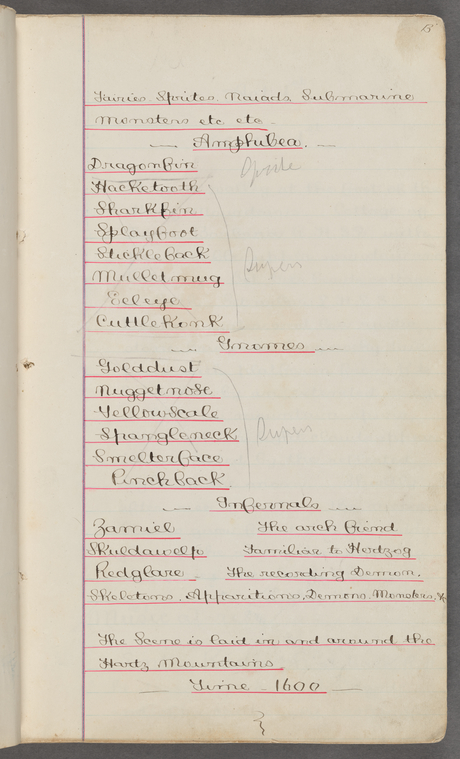 15
Fairies. Sprites. Naiads. Submarine
Monsters etc. etc
Amphibea.
Dragonfin
Hacketooth
Sharkfin
Splayfoot
Stickleback
Mulletmug
Eeleye
Cuttlekonk
Gnomes
Golddust
Nuggetnose
Yellowscale
Spangleneck
Smelterface
Pinchback
Supers
Infernals
Zamiel The arch fiend
Skuldawelp Familiar to Hertzog
Redglare The recording Demon.
Skeletons, Apparitions, Demons, Monsters, &c
The Scene is laid in and around the
Hartz Mountains
Time - 1600